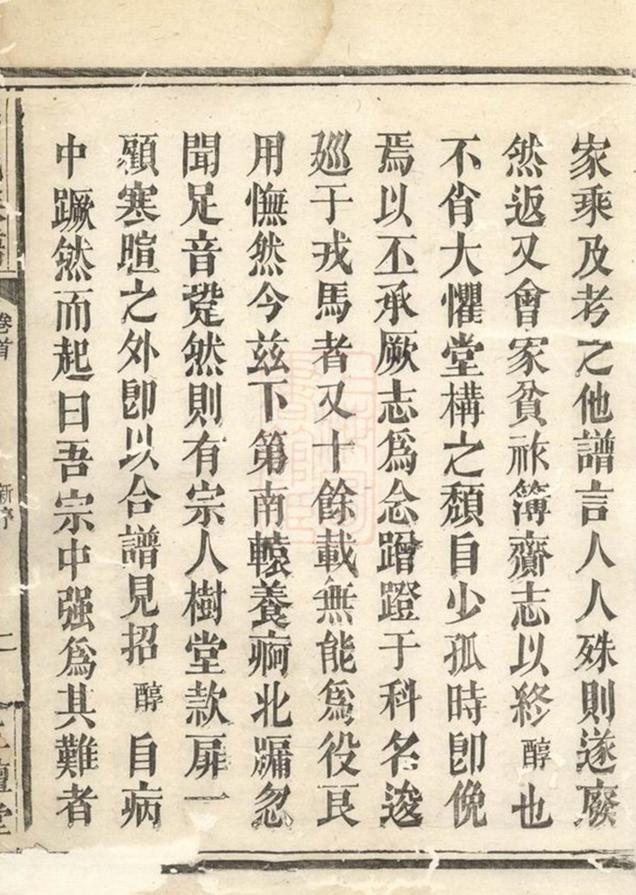 家乘及考之他譜言人人殊則遂廢
然返又會家貧祚簿齎志以終醇也
不省大懼堂構之頽自少孤時卽俛
焉以丕承厥志爲念蹭蹬于科名逡
廵于戎馬者又十餘載無能爲役良
用憮然今兹下第南轅養痾北牖忽
聞足音跫然則有宗人樹堂款扉一
顧寒暄之外卽以合譜見招醇自病
中蹶然而起曰吾宗中强爲其難者
卷首
新序
二